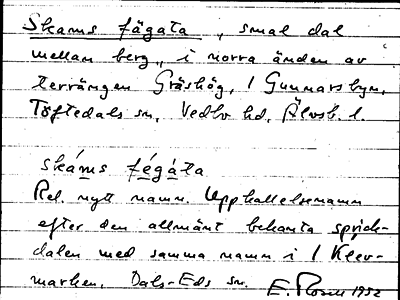 Skams fägata, smal dal
mellan berg, i norra änden av
terrängen Gråshög, 1 Gunnarsbyn,
Töftedals sn, Vedbo hd, Älvsb. l.
skáms fé̱gá̱ta
Rel. nytt namn. Uppkallelsenamn
efter den allmänt bekanta sprick-
dalen med samma namn i 1 Klev-
marken, Dals-Eds sn. E. 1952